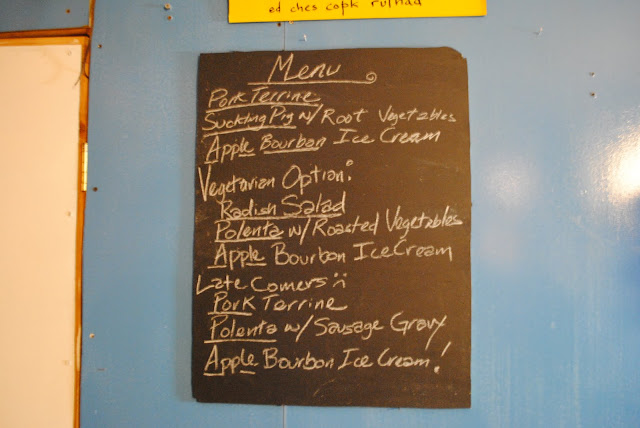 ed ches copk rulhad
Menu
Pork Terrine
Suckling Pig w/ Root Vegetables
Apple Bourbon Ice Cream
Vegetarian Option:
Radish Salad
Polenta w/ Roasted Vegetables
Apple Bourbon Ice Cream
Late Comers :
Pork Terrine
Polenta w/ Sausage Gravy
Apple Bourbon Ice Cream!